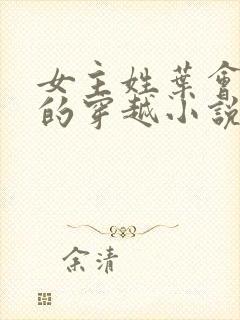 女主姓葉會
的穿越小說
余清